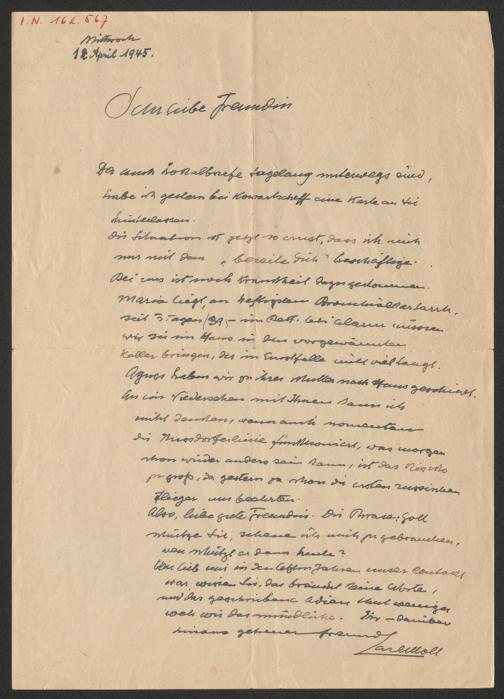 I.N. 162.567
Mittwoch
12 April 1945.
Sehr liebe Freundin
Da auch Lokalbriefe tagelang unterwegs sind,
habe ich gestern bei Konwartscheff eine Karte an Sie
hinterlassen.
Die Situation ist jetzt so ernst, dass ich mich
nur mit dem „bereite Dich" beschäftige.
Bei uns ist noch Krankheit dazugekommen.
Maria liegt, an heftigstem Bronchialkatarrh,
seit 3 Tagen /39,- im Bett. bei Alarm müssen
wir sie im Haus in den vorgewärmten
Keller bringen, der im Ernstfalle nicht viel taugt.
Agnes haben wir zu ihrer Mutter nach Haus geschickt.
An ein Wiedersehen mit Ihnen kann ich
nicht denken, wenn auch momentan
die Nussdorferlinie funktioniert, was morgen
schon wieder anders sein kann, ist das Risiko
zu groß, da gestern ja schon die ersten russischen
Flieger uns beehrten.
Also, liebe gute Freundin. Die Phrase: Gott
schütze Sie, scheue ich mich zu gebrauchen,
wen schützt er denn heute?
Wie lieb mir in den letzten Jahren unser Contact
war wissen Sie, das bräucht keine Worte,
und das geschriebene Adieu thut weniger
weh wie das mündliche. Ihr – darüber
hinaus getreuer Freund
Carl Moll